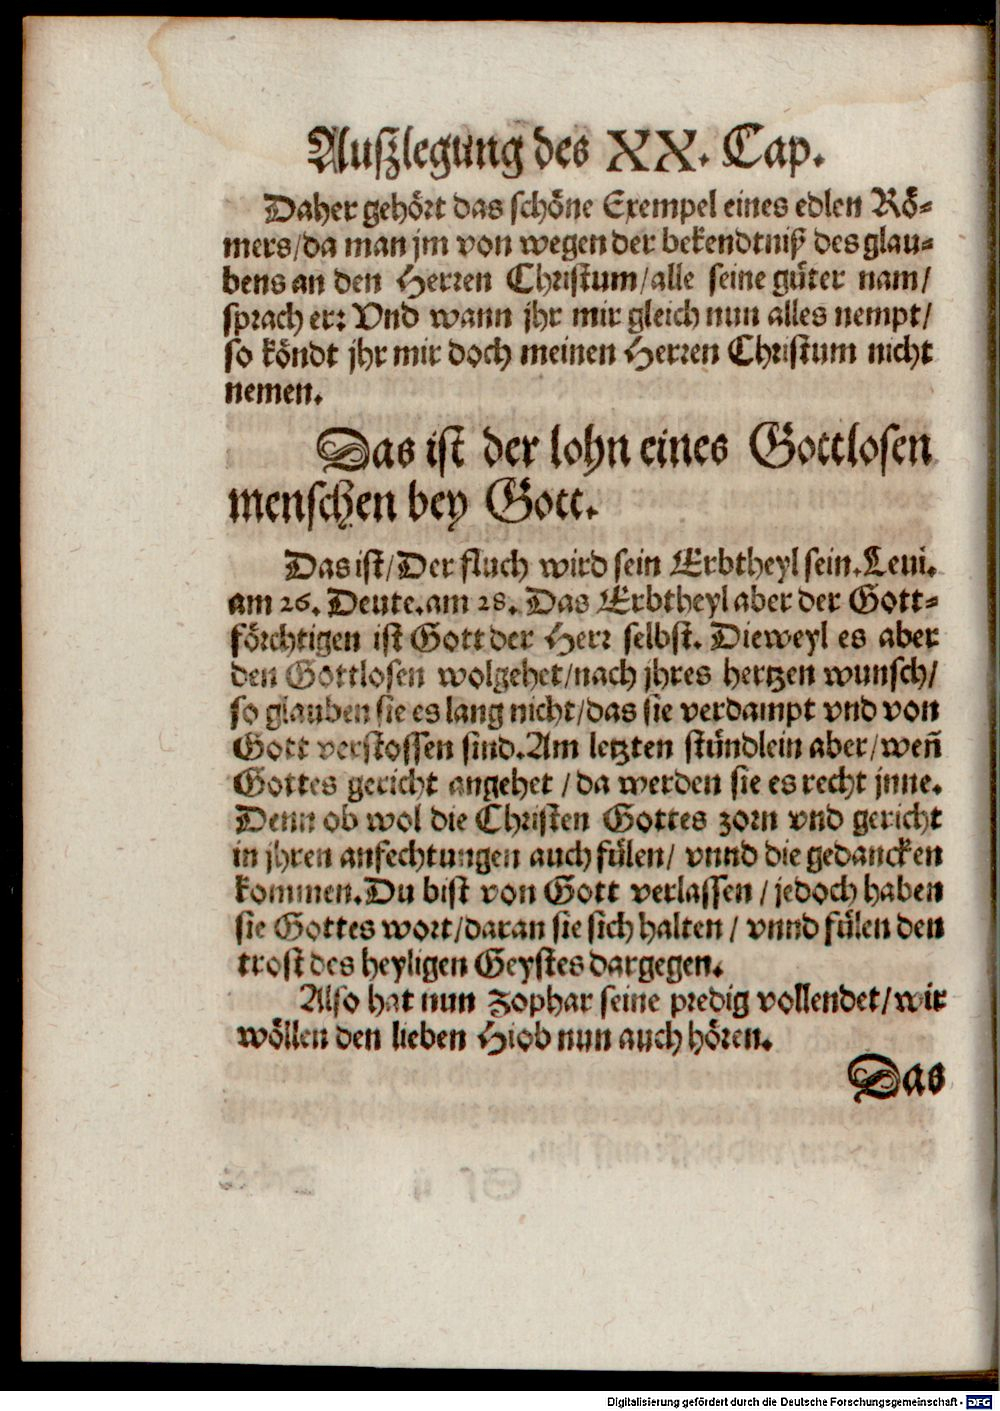 Auſzlegung des XX. Cap.
Daher gehört das ſchöne Exempel eines edlen Rö⸗
mers/da man jm von wegen der bekendtniß des glau⸗
bens an den Herren Chriſtum/alle ſeine güter nam/
ſprach er: Vnd wann jhr mir gleich nun alles nempt/
ſo köndt jhr mir doch meinen Herren Chriſtum nicht
nemen.
Das iſt der lohn eines Gottloſen
menſchen bey Gott.
Das iſt/Der fluch wird ſein Erbtheyl ſein. Leui.
am 26. Deute. am 28. Das Erbtheyl aber der Gott⸗
förchtigen iſt Gott der Herr ſelbſt. Dieweyl es aber
den Gottloſen wolgehet/nach jhres hertzen wunſch/
ſo glauben ſie es lang nicht/das ſie verdampt vnd von
Gott verſtoſſen ſind. Am letzten ſtündlein aber/weñ
Gottes gericht angehet/da werden ſie es recht jnne.
Denn ob wol die Chriſten Gottes zorn vnd gericht
in jhren anfechtungen auch fülen/ vnnd die gedancken
kommen. Du biſt von Gott verlaſſen/jedoch haben
ſie Gottes wort/daran ſie ſich halten/ vnnd fülen den
troſt des heyligen Geyſtes dargegen.
Alſo hat nun Zophar ſeine predig vollendet/wir
wöllen den lieben Hiob nun auch hören.
Das
Digitalisierung gefördert durch die Deutsche Forschungsgemeinschaft - DFG